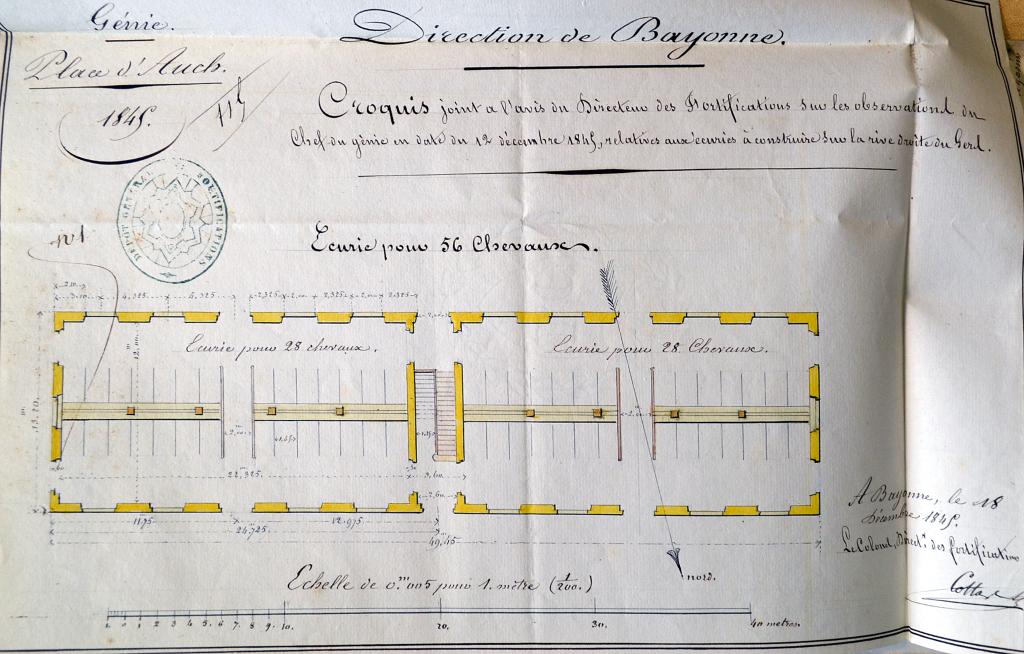 Génie.
Direction de Bayonne.
Place d'Auch.
1845.
Croquis joint a l'avis du Directeur des Fortifications sur les observations du
Chef du génie en date du 12 décembre 1845, relatives aux écuries à construire sur la rive droite du Gers.
DÉPÔT GÉNÉRAL FORTIFICATIONS
Ecurie pour 56 Chevaux.
4,325 4,325 2,325 2,00 2,325 2,00 2,325
Ecurie pour 28 chevaux.
Ecurie pour 28 Chevaux.
12,00
13,20
2,00
2,00
1,45
22,325
3,60
2,60
11,75
12,975
24,725
49,45
nord.
A Bayonne, le 18
Décembre 1845.
Le Colonel, Direct.r des fortifications
Echelle de 0,m005 pour 1. mètre (1/200.)
1. 0 1 2 3 4 5 6 7. 8. 9. 10. 20. 30. 40 metres.